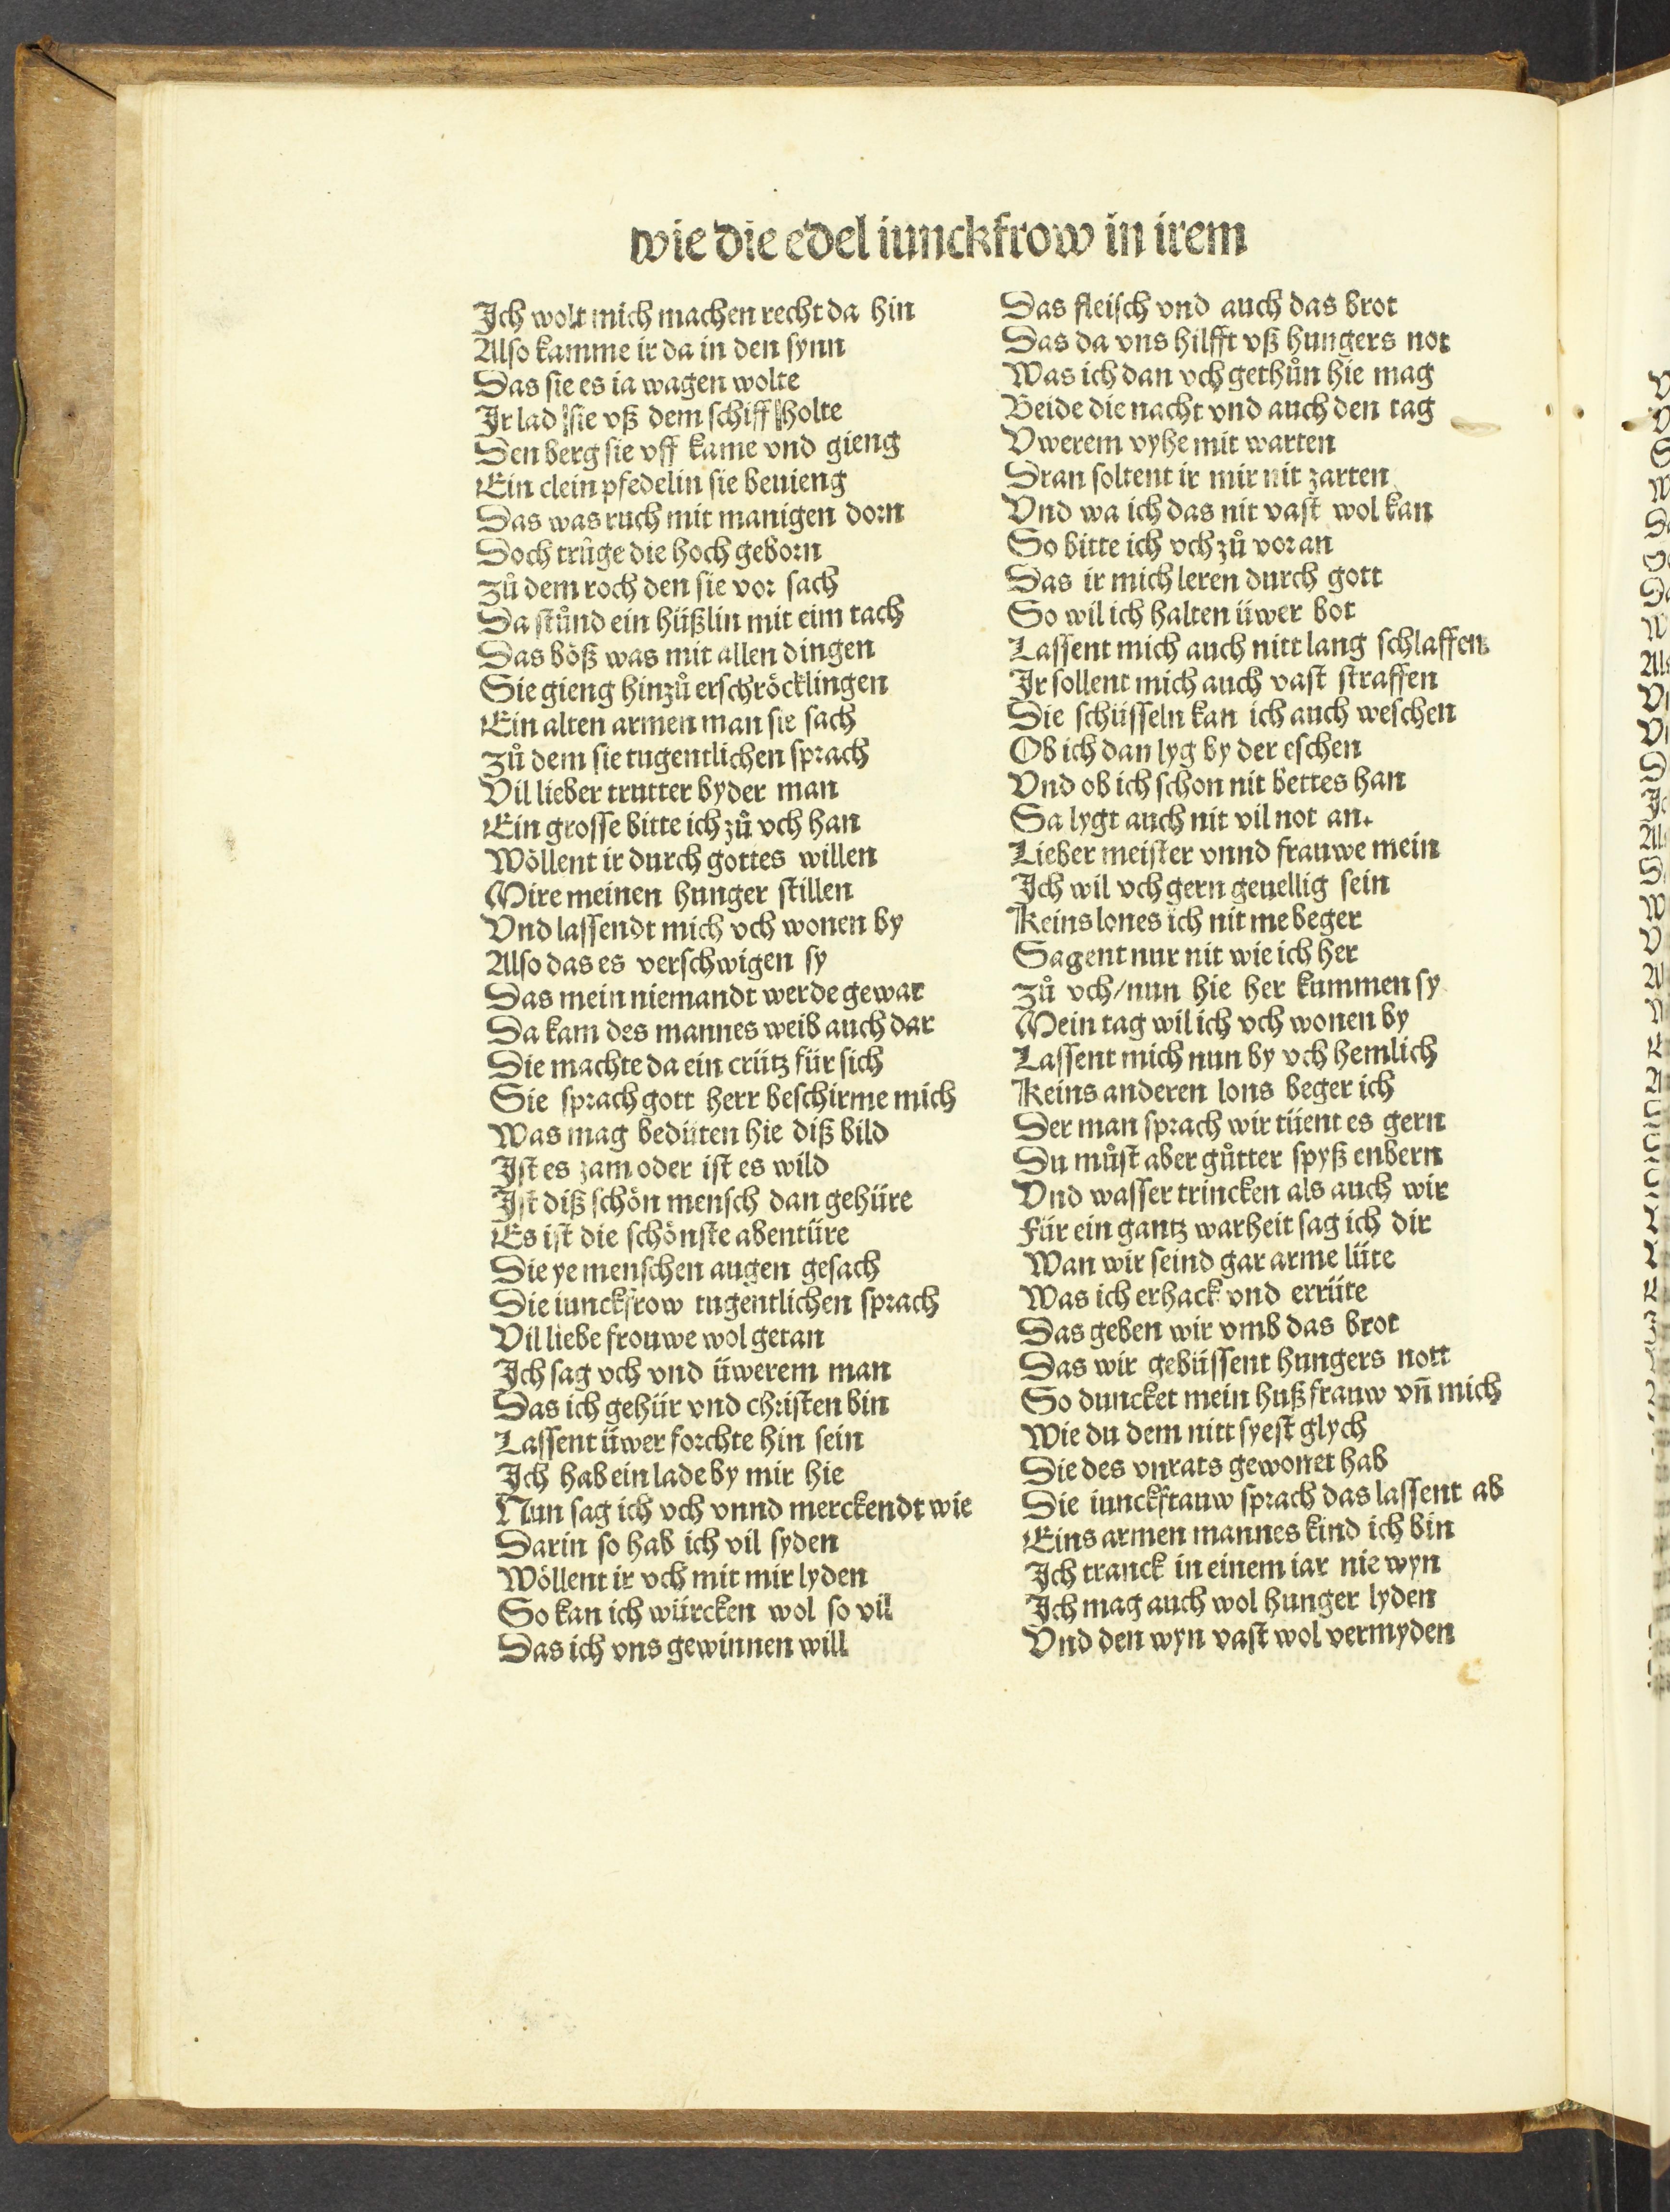 wie die edel iunckfrow in irem
Ich wolt mich machen recht da hin
Also kamme ir da in den synn
Das sie es ia wagen wolte
Ir lad sie vß dem schiff holte
Den berg sie vff kame vnd gieng
Ein clein pfedelin sie beuieng
Das was ruch mit manigen dorn
Doch trůge die hoch geborn
zů dem roch den sie vor sach
Da stůnd ein hüßlin mit eim tach
Das böß was mit allen dingen
Sie gieng hinzů erschröcklingen
Ein alten armen man sie sach
zů dem sie tugentlichen sprach
Vil lieber trutter byder man
Ein grosse bitte ich zů vch han
Wöllent ir durch gottes willen
Mire meinen hunger stillen
Vnd lassendt mich vch wonen by
Also das es verschwigen sy
Das mein niemandt werde gewar
Da kam des mannes weib auch dar
Die machte da ein crütz für sich
Sie sprach gott herr beschirme mich
Was mag bedüten hie diß bild
Ist es zam oder ist es wild
Ist diß schön mensch dan gehüre
Es ist die schönste abentüre
Die ye menschen augen gesach
Die iunckfrow tugentlichen sprach
Vil liebe frouwe wol getan
Ich sag vch vnd üwerem man
Das ich gehür vnd christen bin
Lassent üwer forchte hin sein
Ich hab ein lade by mir hie
Nun sag ich vch vnnd merckendt wie
Darin so hab ich vil syden
Wöllent ir vch mit mir lyden
So kan ich würcken wol so vil
Das ich vns gewinnen will
Das fleisch vnd auch das brot
Das da vns hilfft vß hungers not
Was ich dan vch gethůn hie mag
Beide die nacht vnd auch den tag
Vwerem vyhe mit warten
Dran soltent ir mir nit zarten
Vnd wa ich das nit vast wol kan
So bitte ich vch zů voran
Das ir mich leren durch gott
So wil ich halten üwer bot
Lassent mich auch nitt lang schlaffen
Ir sollent mich auch vast straffen
Die schüsseln kan ich auch weschen
Ob ich dan lyg by der eschen
Vnd ob ich schon nit bettes han
Sa lygt auch nit vil not an.
Lieber meister vnnd frauwe mein
Ich wil vch gern geuellig sein
Keins lones ich nit me beger
Sagent nur nit wie ich her
zů vch/nun hie her kummen sy
Mein tag wil ich vch wonen by
Lassent mich nun by vch hemlich
Keins anderen lons beger ich
Der man sprach wir tüent es gern
Du můst aber gůtter spyß enbern
Vnd wasser trincken als auch wir
Für ein gantz warheit sag ich dir
Wan wir seind gar arme lüte
Was ich erhack vnd errüte
Das geben wir vmb das brot
Das wir gebüssent hungers nott
So duncket mein huß frauw vn̄ mich
Wie du dem nitt syest glych
Die des vnrats gewonet hab
Die iunckfrauw sprach das lassent ab
Eins armen mannes kind ich bin
Ich tranck in einem iar nie wyn
Ich mag auch wol hunger lyden
Vnd den wyn vast wol vermyden